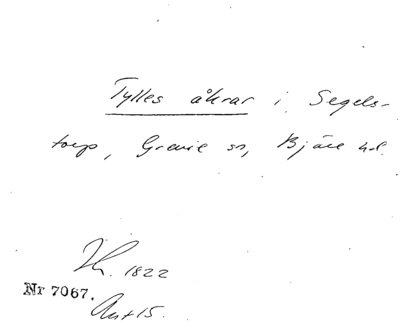 Tylles åkrar i Segels-
torp, Grevie sn, Bjäre hd.
Th. 1822
Nr 7067.
Akt 15.